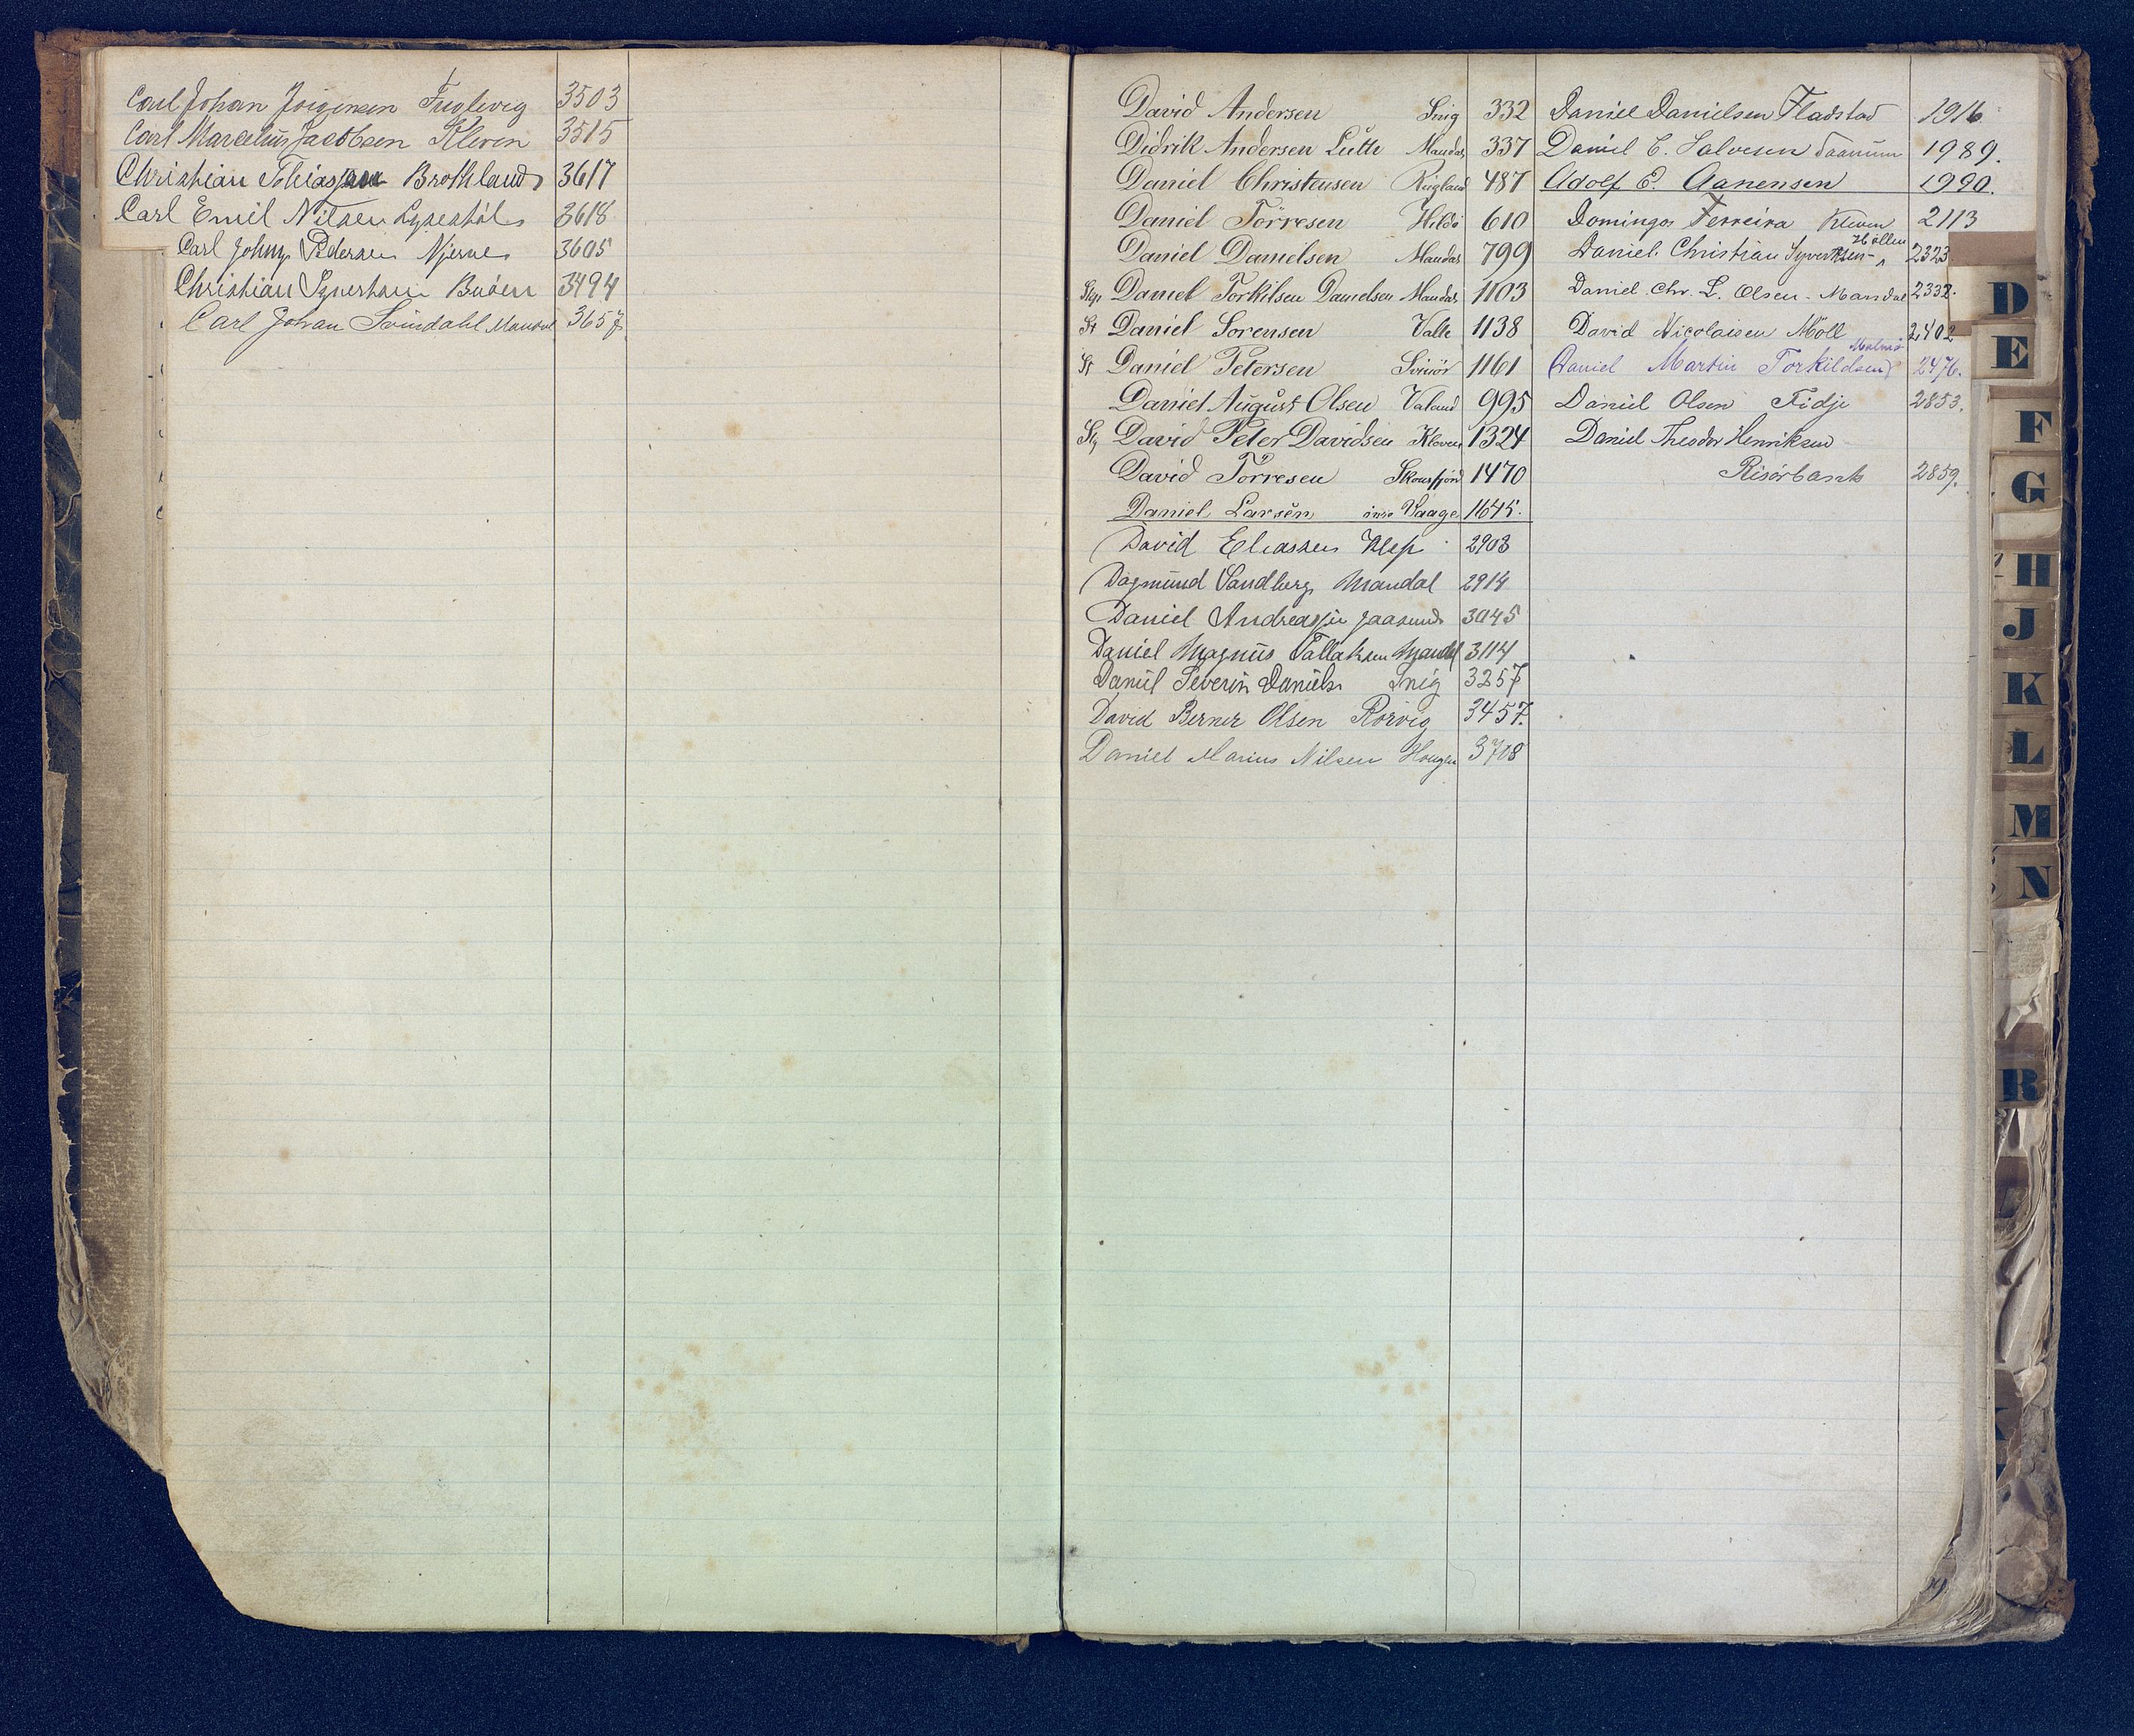 Carl Johan Jörgensen Fuglevig 3503
Carl Marcelius Jacobsen Kleven 3515
Christian Tobiassen Brothland 3617
Carl Emil Nilsen 3618
Carl Johan Pedersen Njerve 3605
Christian Syvertsen Buöen 3494
Carl Johan Svindahl Mandal 3657
David Andersen Snig 332
Didrik Andersen Lütte Mandal 337
Daniel Christensen Rugland 487
Daniel Törresen Hildö 610
Daniel Danielsen Mandal 799
Daniel Torkilsen Danielsen Mandal 1103
St Daniel Sörensen Valle 1138
St Daniel Petersen Svinör 1161
Daniel August Olsen Valand 995
David Peter Davidsen Kleven 1324
David Törresen Skonsfjord 1470
Daniel Larsen Vaage 1645.
David Eliassen Klep 2908
Dagmund Sandberg Mandal 2914
Daniel Andreas Jaasund 3045
Daniel Magnus Tallaksen Mandal 3114
Daniel Severin Daniels. Snig 3257
David Berner Olsen Rörvig 3457.
Daniel Marius Nilsen Hougen 3708
Daniel Danielsen Fladstad 1916
Daniel E. Salvesen 1989.
Adolf E. Aanensen 1990.
Domingos Ferreira Kleven 2113
Daniel Christian Syvertsen Höllen 2323
Daniel Chr. L. Olsen - Mandal 2332.
David Nicolaisen Möll 2402
Daniel Martin Torkildsen Malmö 2476.
Daniel Olsen Fidje 2853.
Daniel Theodor Henriksen
Risörbank 2859.
D
E
F
G
H
J
K
L
M
N
R